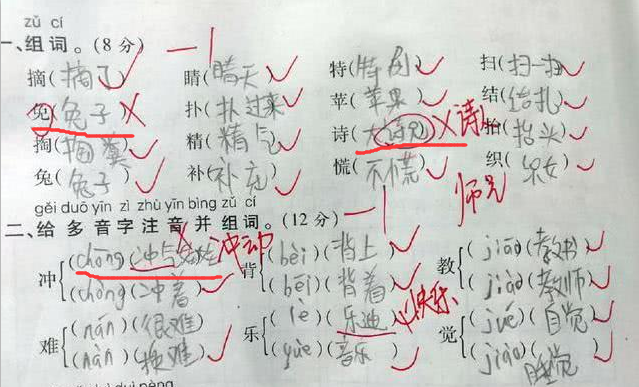 zǔ cí
一、组词。(8分) 一1
摘(摘了) 睛(晴天) 特(特别) 扫(扫一扫)
兔(兔子) 扑(扑过来) 苹(苹果) 结(结扎)
掏(掏粪) 精(精气) 诗(大诗兄) 诗人 抬(抬头)
兔(兔子) 补(补充) 慌(不慌) 织(织女)
师兄
gěi duō yīn zì zhù yīn bìng zǔ cí
二、给多音字注音并组词。(12分) 一1
冲 (chōng)(冲气娃娃) 冲动 背 (bēi)(背上) 教 (jiāo)(教书)
(chòng)(冲着) (bēi)(背着) (jiào)(教师)
难 (nán)(很难) 乐 (lè)(乐迪) 快乐 觉 (jué)(自觉)
(nàn)(难) (yuè)(音乐) (jiào)(睡觉)